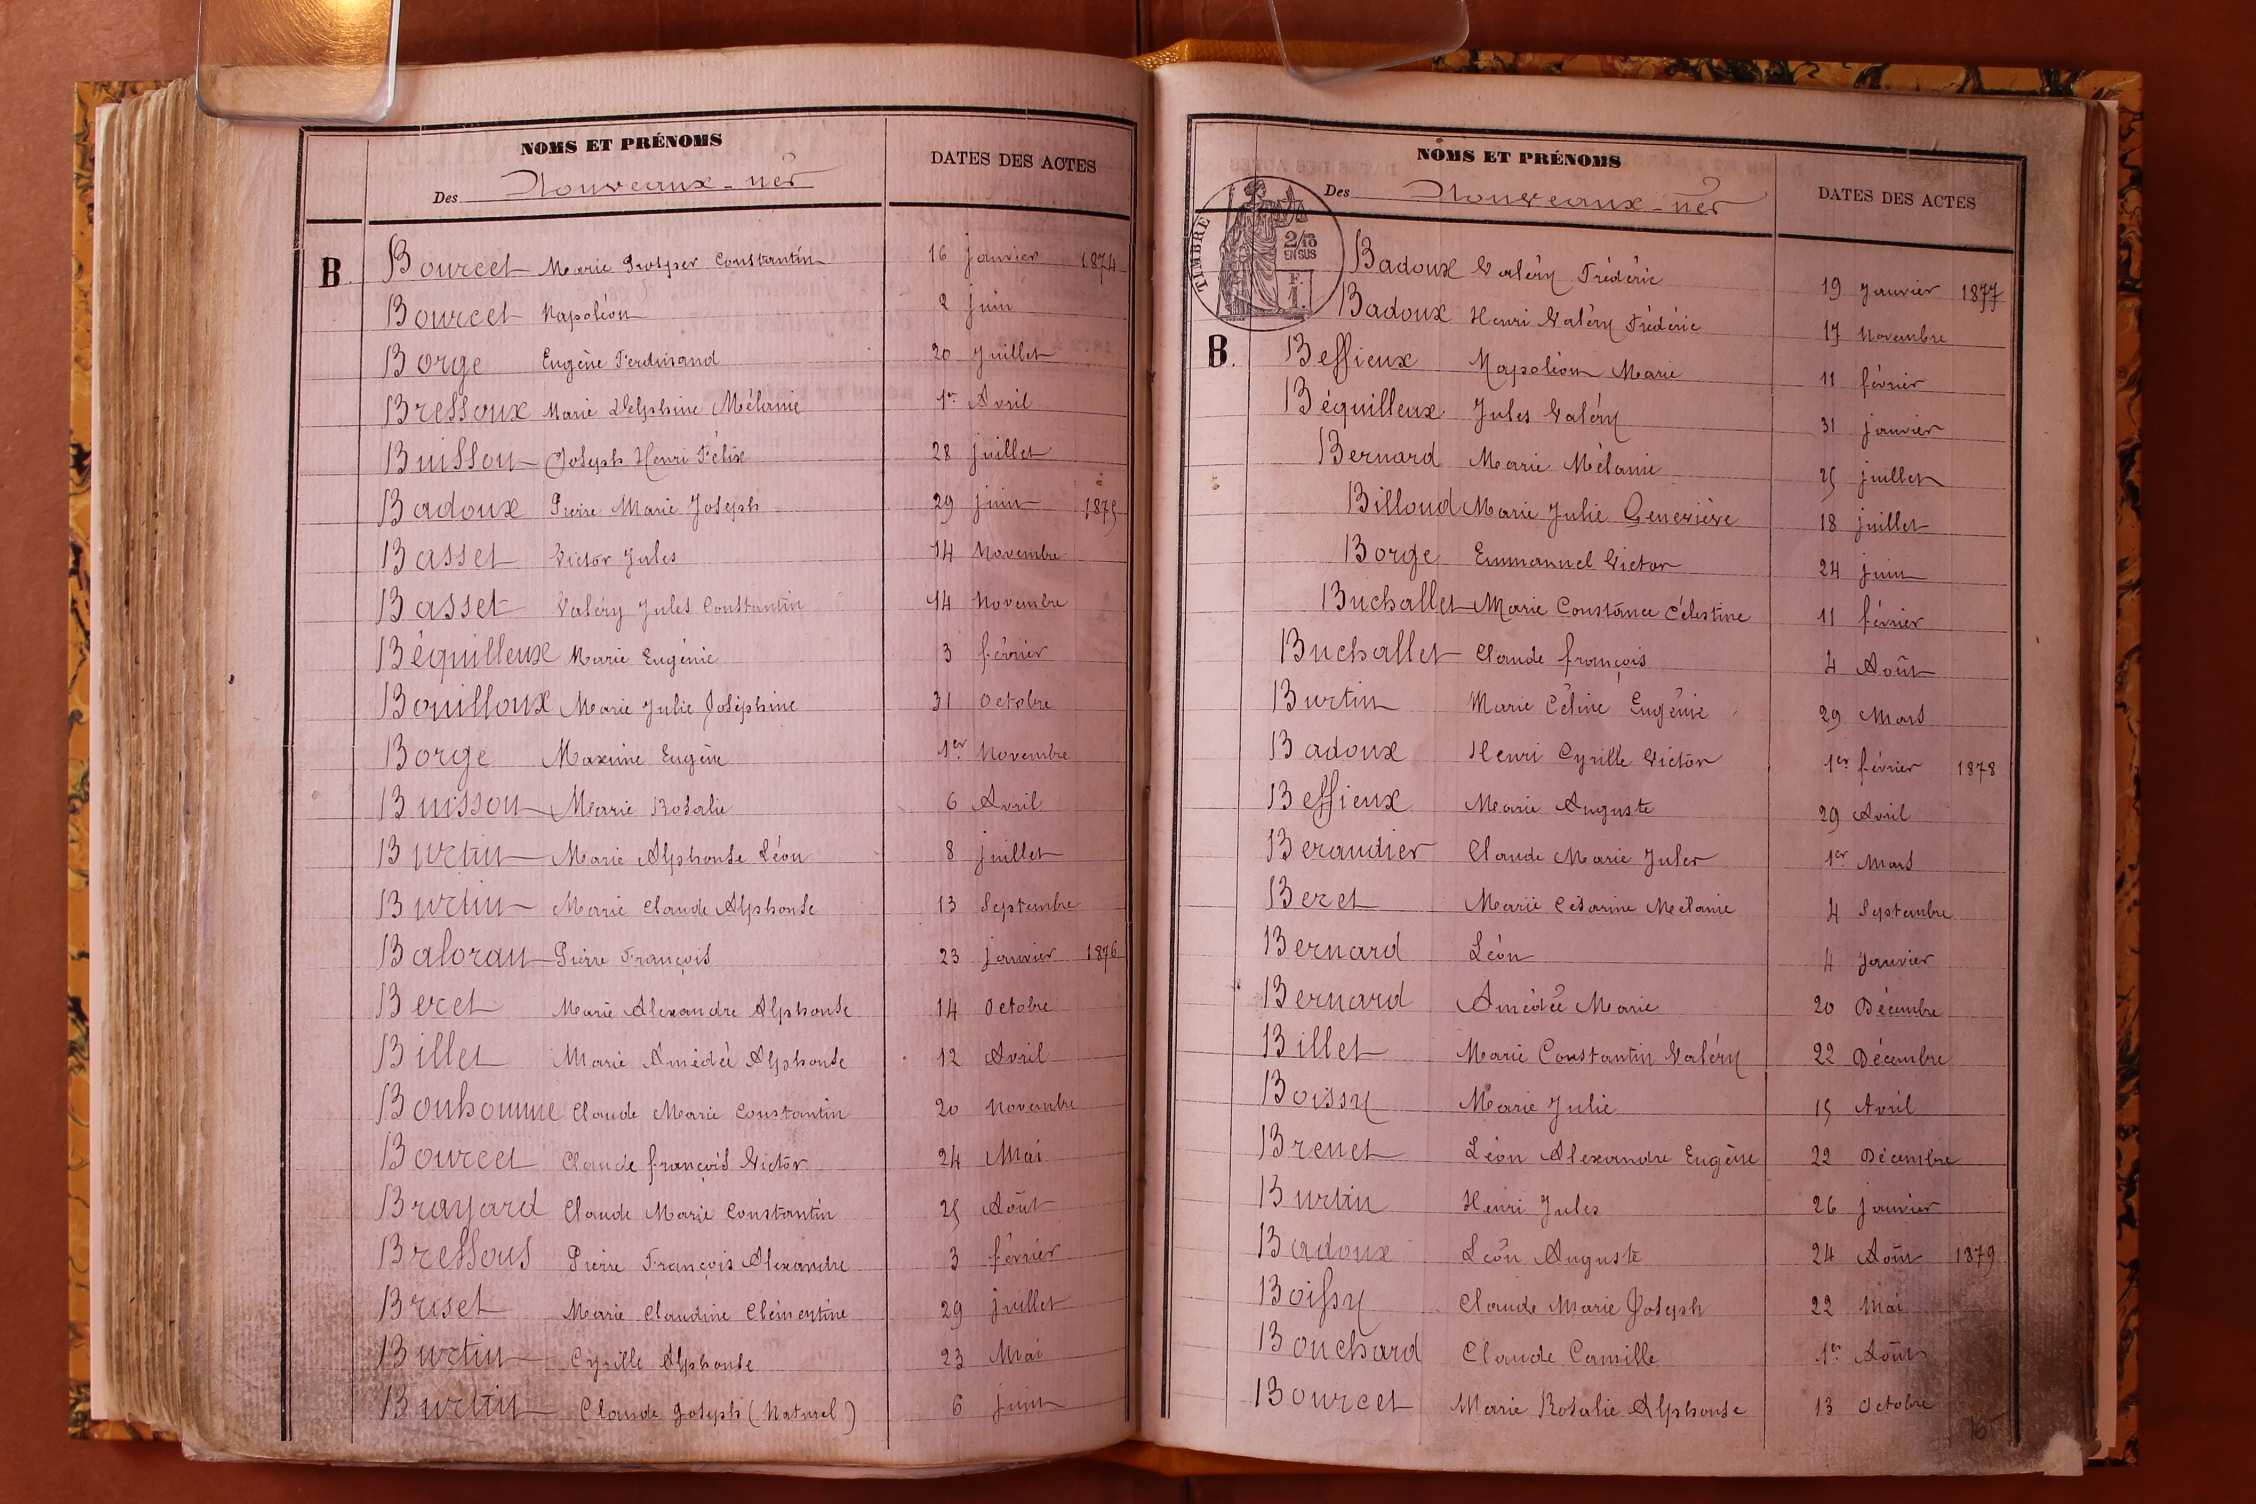 NOMS ET PRÉNOMS
DATES DES ACTES
Des Nouveaux-nés
B. Bourcet Marie Prosper Constantin 16 janvier 1874
Bourcet Napoléon 2 juin
Borge Eugène Ferdinand 20 juillet
Bressoux Marie Delphine Mélanie 1er Avril
Buisson Joseph Henri Félix 28 juillet
Badoux Pierre Marie Joseph 29 juin 1875
Basset Victor Jules 14 Novembre
Basset Valéry Jules Constantin 14 Novembre
Béquilleux Marie Eugénie 3 février
Bouilloux Marie Julie Joséphine 31 Octobre
Borge Maxime Eugène 1er Novembre
Buisson Marie Rosalie 6 Avril
Burtin Marie Alphonse Léon 8 juillet
Burtin Marie Claude Alphonse 13 Septembre
Baloran Pierre François 23 janvier 1876
Beret Marie Alexandre Alphonse 14 Octobre
Billet Marie Amédée Alphonse 12 Avril
Bonhomme Claude Marie Constantin 20 Novembre
Bourcet Claude françois Victor 24 Mai
Brayard Claude Marie Constantin 25 Août
Bressous Pierre François Alexandre 3 février
Briset Marie Claudine Clémentine 29 juillet
Burtin Cyrille Alphonse 23 Mai
Burtin Claude Joseph (Naturel) 6 juin
NOMS ET PRÉNOMS
DATES DES ACTES
Des Nouveaux-nés
TIMBRE
2/10
EN SUS
F.
1.
Badoux Valéry Frédéric 19 Janvier 1877
Badoux Henri Valéry Frédéric 17 Novembre
B. Beffieux Napoléon Marie 11 février
Béquilleux Jules Valéry 31 janvier
Bernard Marie Mélanie 25 juillet
Billoud Marie Julie Geneviève 18 juillet
Borge Emmanuel Victor 24 juin
Buchallet Marie Constance Célestine 11 février
Buchallet Claude françois 4 Août
Burtin Marie Céline Eugénie 29 Mars
Badoux Henri Cyrille Victor 1er février 1878
Beffieux Marie Auguste 29 Avril
Beraudier Claude Marie Jules 1er Mars
Beret Marie Césarine Mélanie 4 Septembre
Bernard Léon 4 Janvier
Bernard Amédée Marie 20 Décembre
Billet Marie Constantin Valéry 22 Décembre
Boissy Marie Julie 15 Avril
Brenet Léon Alexandre Eugène 22 Décembre
Burtin Henri Jules 26 janvier
Badoux Léon Auguste 24 Août 1879
Boissy Claude Marie Joseph 22 Mai
Bouchard Claude Camille 1er Août
Bourcet Marie Rosalie Alphonse 13 Octobre
16